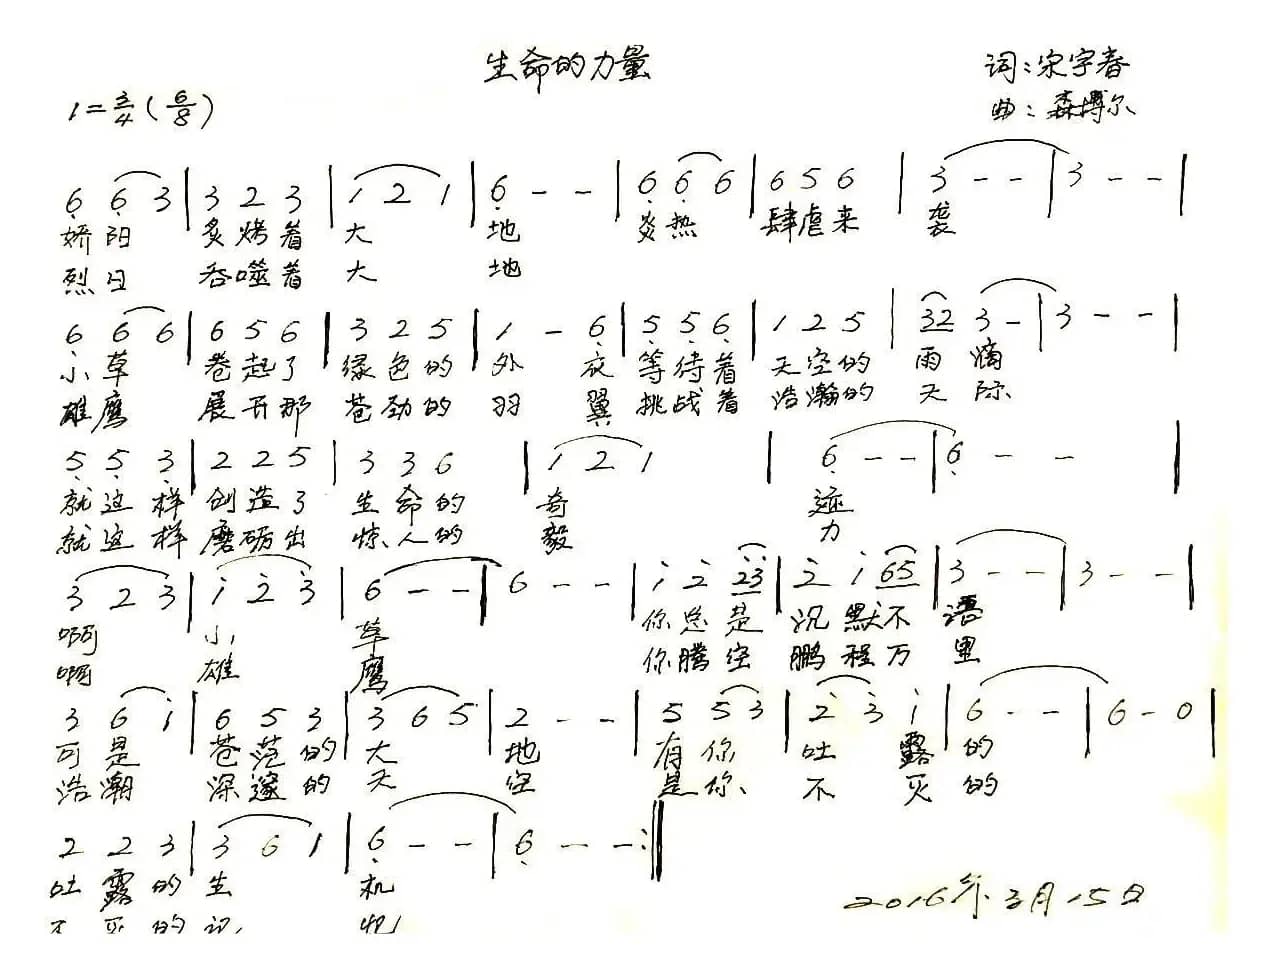 生命的力量
词：宋字春
1=3/4(6/8)
曲：森博尔
6 6 3 | 3 2 3 | 1 2 1 | 6 - - | 6 6 6 | 6 5 6 | 3 - - | 3 - - |
娇阳 炙烤着 大 地 炎热 肆虐来 袭
烈日 吞噬着 大 地
6 6 6 | 6 5 6 | 3 2 5 | 1 - 6 | 5 5 6 | 1 2 5 | 32 3 - | 3 - - |
小草 卷起了 绿色的 外 衣 等待着 天空的 雨滴
雄鹰 展开那 苍劲的 羽 翼 挑战着 浩瀚的 天际
5 5 3 | 2 2 5 | 3 3 6 | 1 2 1 | 6 - - | 6 - - |
就这样 创造了 生命的 奇 迹
就这样 磨砺出 惊人的 毅 力
3 2 3 | i 2 3 | 6 - - | 6 - - | i 2 23 | 2 i 65 | 3 - - | 3 - - |
啊 小 草 你总是 沉默不 语
啊 雄 鹰 你腾空 鹏程万 里
3 6 i | 6 5 3 | 3 6 5 | 2 - - | 5 5 3 | 2 3 i | 6 - - | 6 - 0 |
可是 苍茫的 大 地 有你 吐 露 的
浩瀚 深邃的 天 空 是你 不 灭 的
2 2 3 | 3 6 1 | 6 - - | 6 - - :||
吐露的 生 机
不灭的 记 忆
2016年3月15日